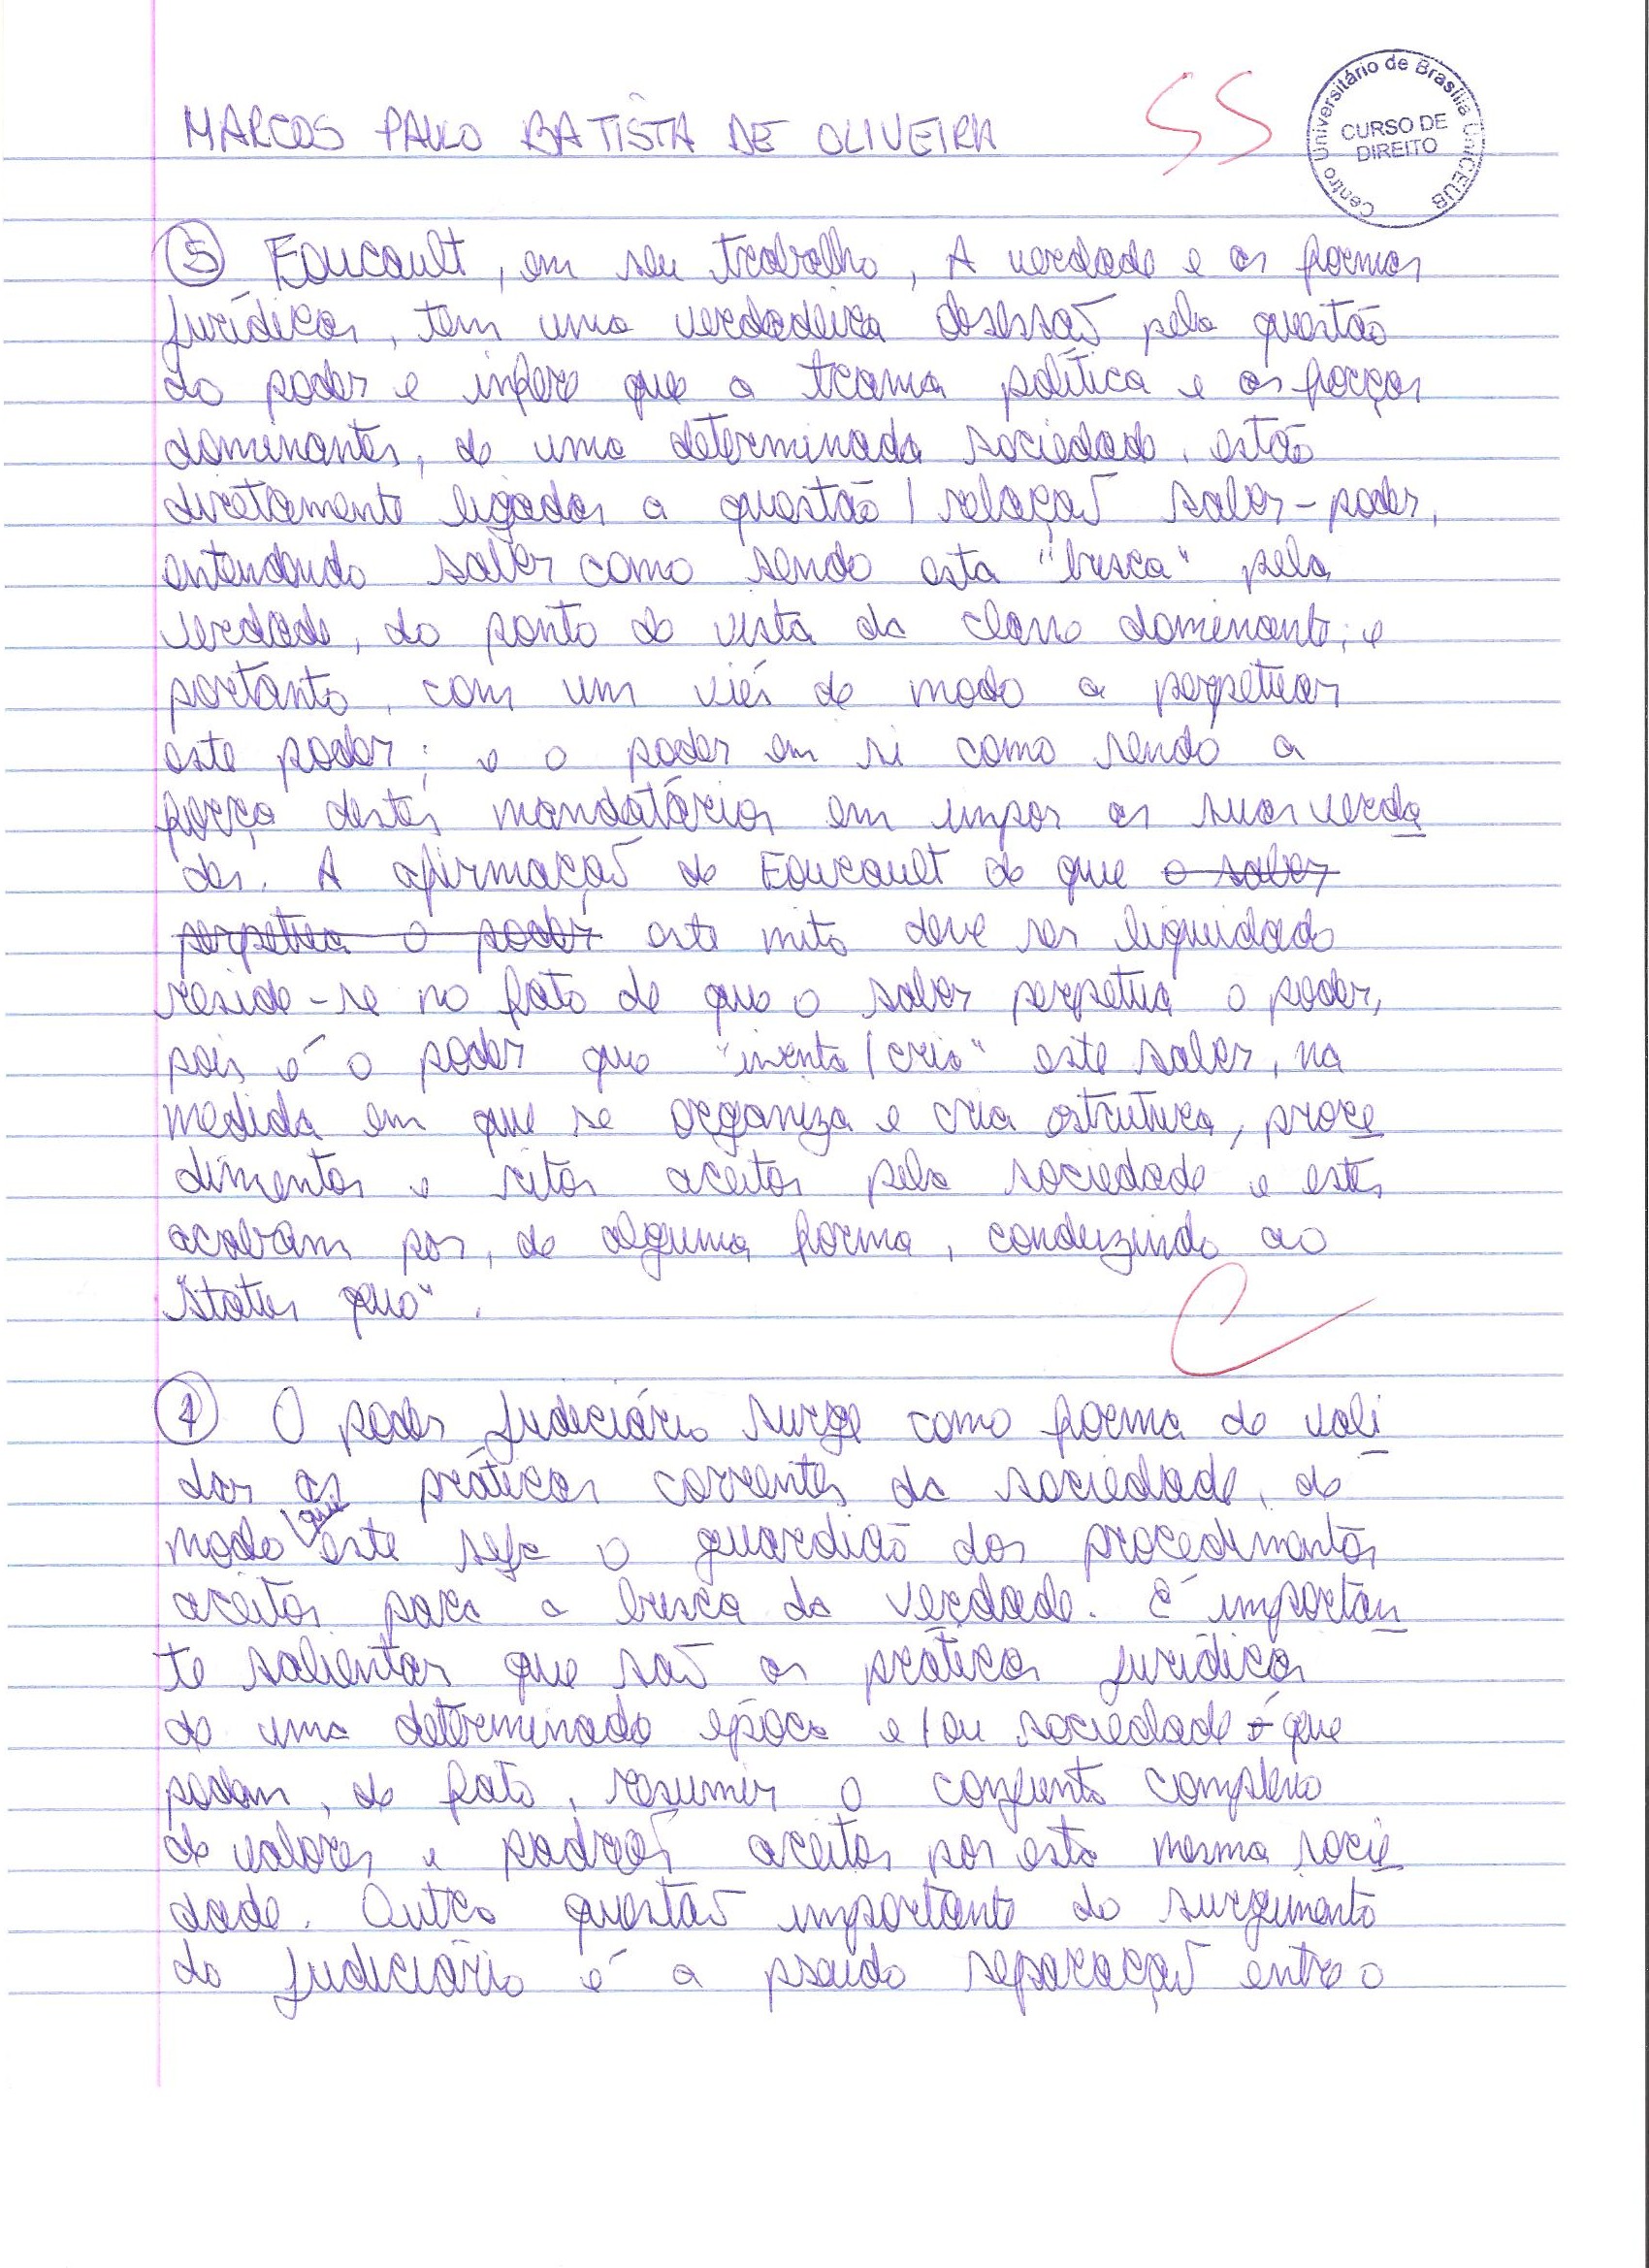 MARCOS PAULO BATISTA DE OLIVEIRA
SS
Centro Universitário de Brasília UniCEUB
CURSO DE
DIREITO
5 Foucault, em seu trabalho, A verdade e as formas
jurídicas, tem uma verdadeira obsessão pela questão
do poder e infere que a trama política e as forças
dominantes, de uma determinada sociedade, estão
diretamente ligadas a questão / relação saber-poder,
entendendo saber como sendo esta "busca" pela
verdade, do ponto de vista da classe dominante; e
portanto, com um viés de modo a perpetuar
este poder; e o poder em si como sendo a
força destes mandatários em impor as suas verda
des. A afirmação de Foucault de que o saber
perpetua o poder este mito deve ser liquidado
reside-se no fato de que o saber perpetua o poder,
pois é o poder que "inventa / cria" este saber, na
medida em que se organiza e cria estrutura, proce
dimentos e ritos aceitos pela sociedade e estes
acabam por, de alguma forma, conduzindo ao
"status quo".
C
1 O poder judiciário surge como forma de vali
dar as práticas correntes da sociedade, de
modo que este seja o guardião dos procedimentos
aceitos para a busca da verdade. É importan
te salientar que são as práticas jurídicas
de uma determinada época e/ou sociedade que
podem, de fato, resumir o conjunto complexo
de valores e padrões aceitos por esta mesma socie
dade. Outra questão importante do surgimento
do judiciário é a pseudo separação entre o